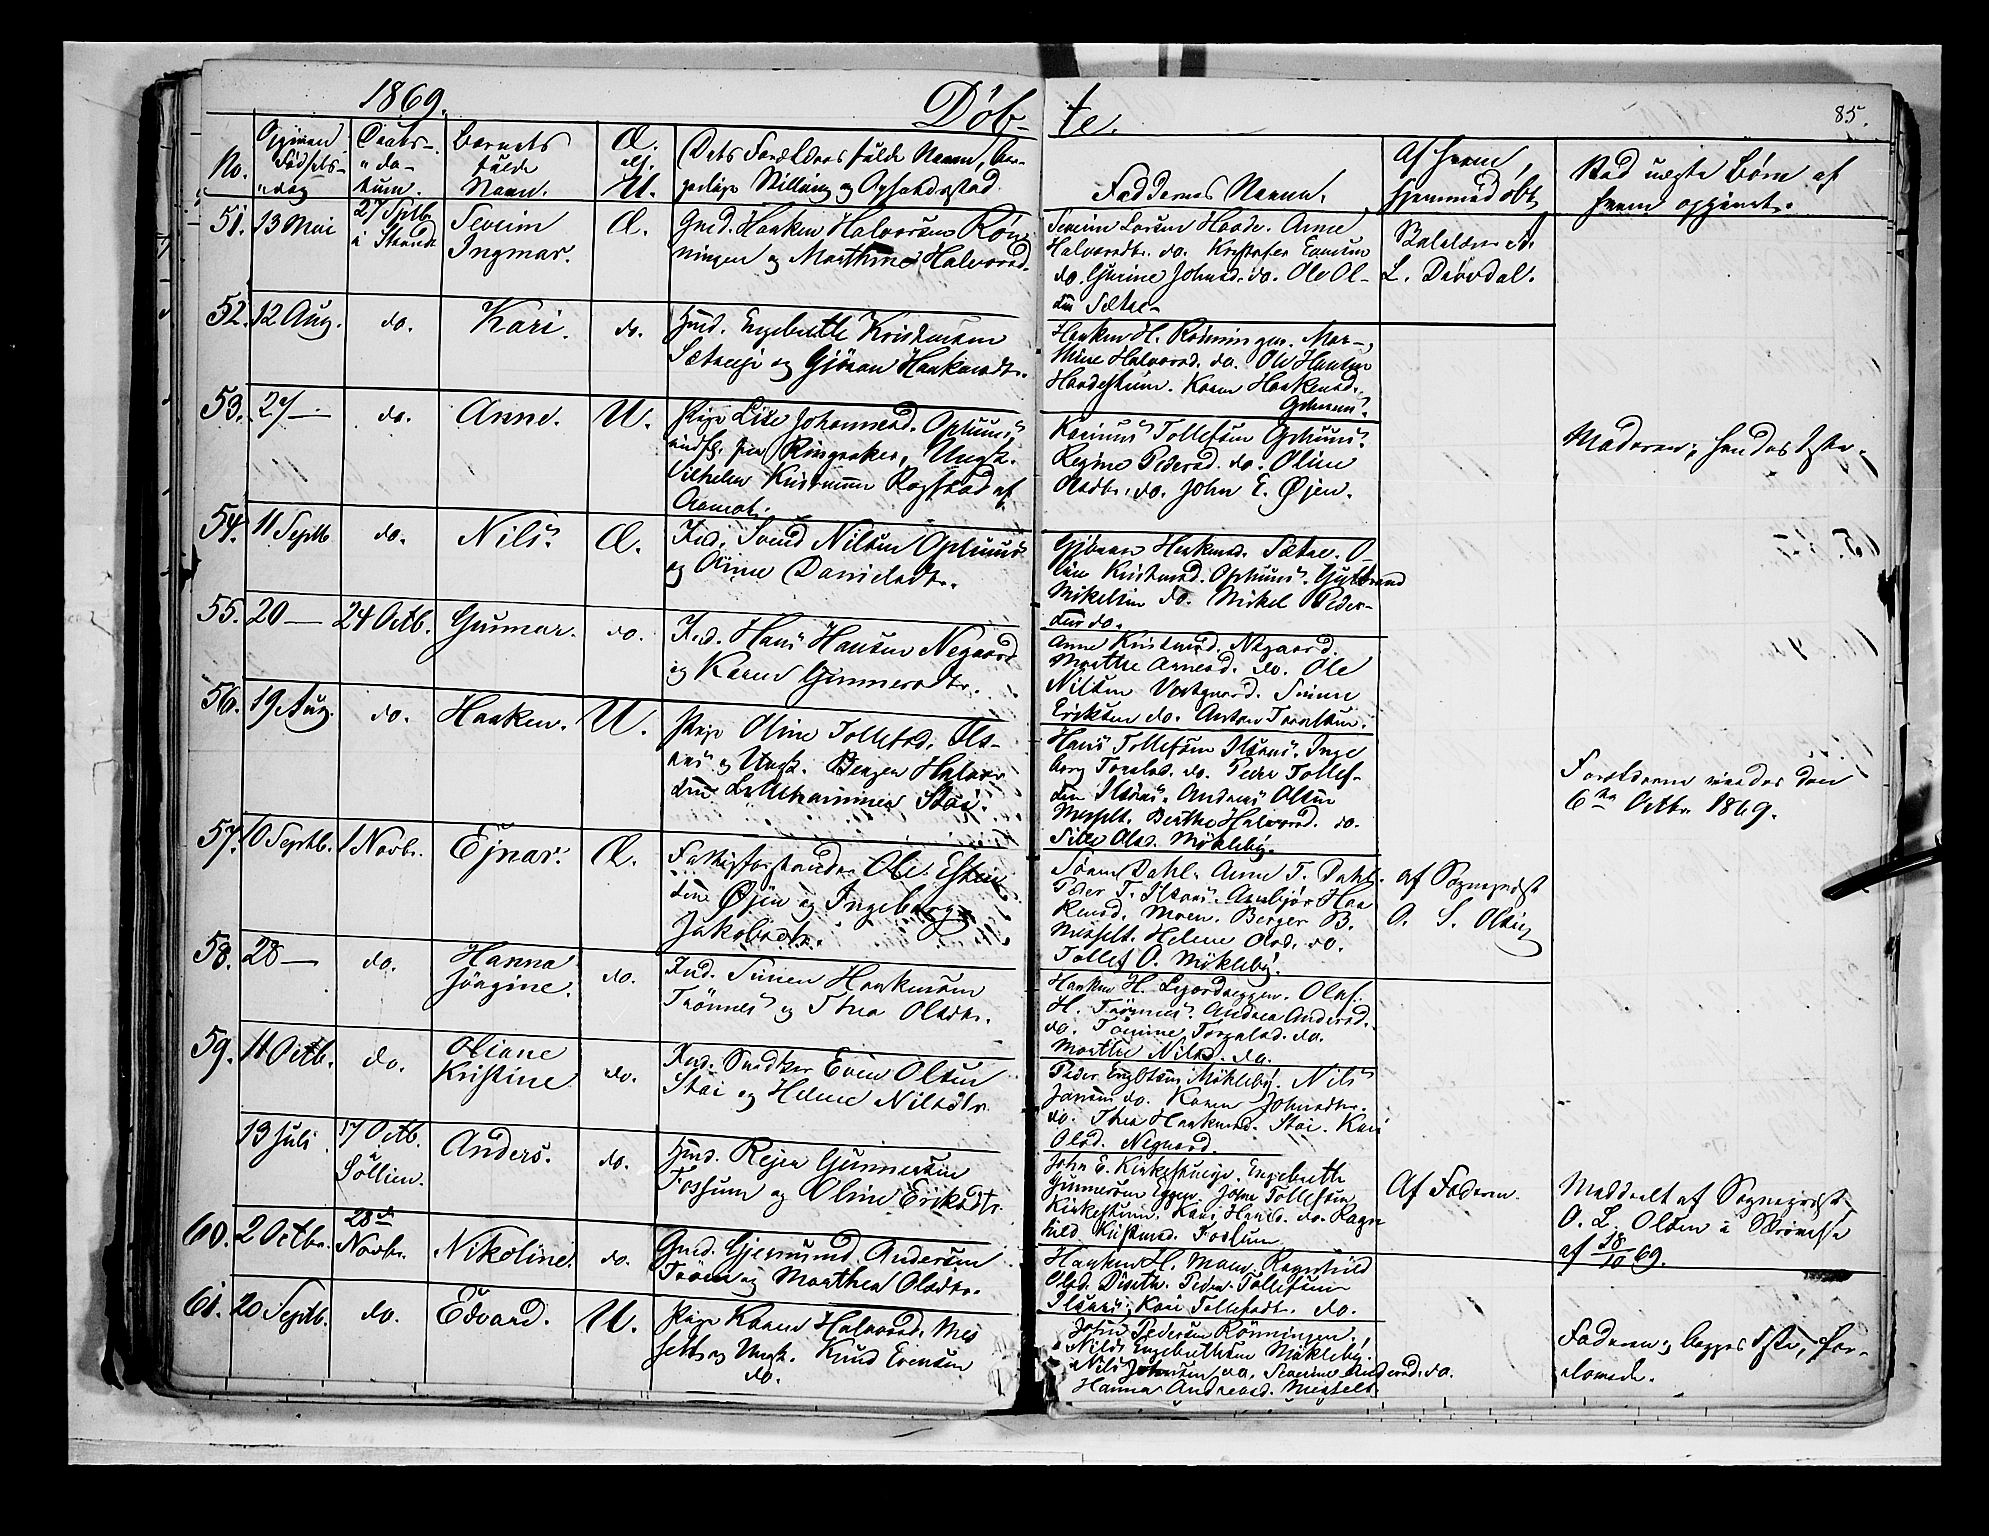 1869. Döb- te. 85.
No.
Opgiven Fødsels- dag
Daabs- da- tum.
Barnets fulde Navn.
Æ. ell. U.
Dets Forældres fulde Navn, bor-
gerlige Stilling og Opholdssted
Faddernes Navne.
Af hvem hjemmedøbt
Ved uægte Børn af
hvem opgivet.
51. 13 Mai 27 Septb. i Strand Severin Ingmar. Æ.
Gmd. Haaken Halvorsen Røn-
ningen og Marthine Halvorsd.
Severin Larsen Haade. Anne
Halvorsdtr. do. Kristofer Evensen
do. Gurine Johnsd. do. Ole Ol-
sen Sætre
L. Drövdal.
52. 12 Aug. do. Kari. do.
Hmd. Engebreth Kristensen
Sætreeje og Gjöran Haakensdtr.
Haaken H. Rønningen. Mar-
thine Halvorsd. do. Ole Hansen
Haadestuen. Karen Haakensd.
Ophuus.
53. 27 — do. Anne. U.
Pige Lise Johannesd. Ophuus
indfl. fra Ringsaker, Ungk.
Vilhelm Kristensen Rogstad af
Aamot.
Karinus Tollefsen Ophuus.
Regine Pedersd. do. Oline
Olsdtr. do. John E. Øjen.
Moderen; hendes 1ste.
54. 11 Septb do. Nils. Æ.
Ind. Svend Nilsen Ophuus
og Oline Danielsdtr.
Gjöran Haakensd. Sætre. O-
line Kristensd. Ophuus. Gulbrand
Mikelsen do. Mikel Peder-
sen do.
55. 20 — 24 Octb. Gunnar. do.
Ind. Hans Hansen Negaard
og Karen Gunnersdtr.
Anne Kristensd. Negaard.
Marthe Arnesd. do. Ole
Nilsen Vestgaard. Simen
Eriksen do. Anton
56. 19 Aug. do. Haaken. U.
Pige Oline Tollefsd. Ils-
aas og Ungk. Berger Halvor-
sen Stai.
Hans Tollefsen Ilsaas. Inge-
borg do. Peder Tollef-
sen Ilsaas. Andreas Olsen
Messelt. Berthe Halvorsd. do.
Sille Olsd. Mökleby.
Forældrene viedes den
6te Octbr. 1869.
57. 10 Septb. 1 Novbr. Ejnar. Æ.
Fattigforstander Ole Esten-
sen Øjen og Ingeborg
Jakobsdtr.
Sören Dahl. Anne T. Dahl.
Peder T. Ilsaas. Ambjör Haa-
kensd. Moen. Berger B.
Messelt. Helene Olsd. do.
Tollef O. Mökleby.
af Sogneprest
O. S. Olsen
58. 28 — do. Hanna Jörgine. do.
Ind. Simen Haakensen
Trönnes og Thea Olsdtr.
Haaken H. Olaf
H. Trönnes. Andrea Andersd.
do. do.
Marthe Nilsd. do.
59. 11 Octb. do. Oliane Kristine do.
Ind. Snedker Even Olsen
Stai og Helene Nilsdtr
Peder Engebretsen Mökleby. Nils
Jansen do. Karen Johnsdtr.
do. Thea Haakensd. Stai. Kari
Olsd. Negaard.
13 Juli. 17 Octb. i Sollien. Anders. do.
Hmd. Rejer Gunnersen
Fossum og Oline Eriksdtr.
John E. Kirkestueje. Engebreth
Gunnersen Eggen. John Tollefsen
Kirkestuen. Kari Hansd. do. Ragn-
hild Kristensd. Fossum
Af Faderen.
Meddeelt af Sogneprest
O. L. Olsen i
af 18/10 69.
60. 2 Octbr. 28de Novbr. Nikoline. do.
Gmd. Gjermund Andersen
Tröen og Marthea Olsdtr.
Haaken H. Moen. Ragnhild
Olsd. Peder Tollefsen
Ilsaas; Kari Tollefsdtr. do.
61. 20 Septb. do. Edvard. U.
Pige Karen Halvorsd. Mes-
selt og Ungk. Knud Evensen
do.
John Pedersen Rönningen.
Nils Engebrethsen Mökleby.
Nils Johnsen do. Severine Andersd. do.
Hanna Andreasd. Messelt
Faderen; begges 1ste, for-
lovede.